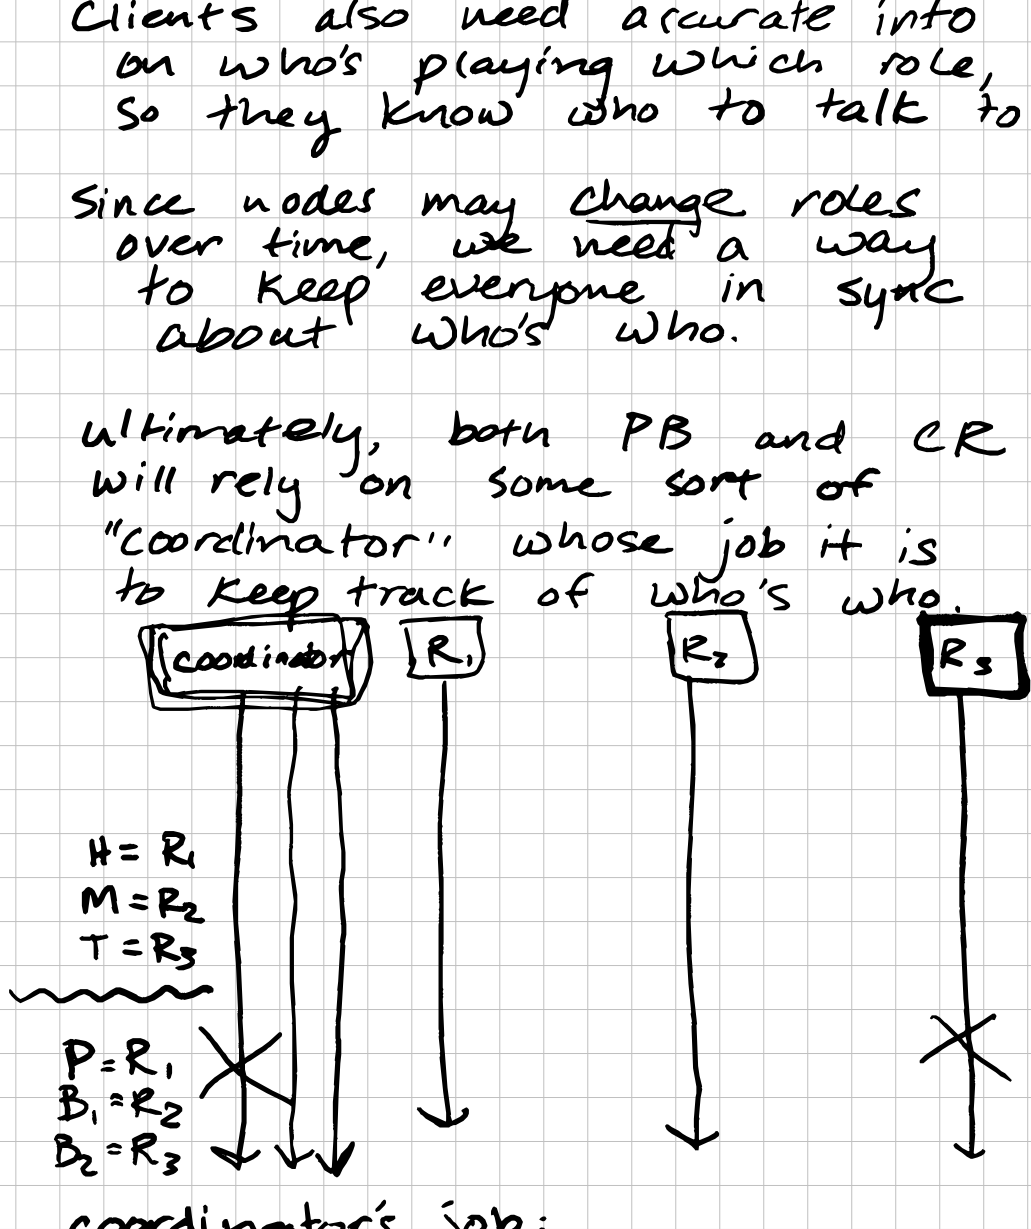 Clients also need accurate info
on who's playing which role,
so they know who to talk to
Since nodes may change roles
over time, we need a way
to keep everyone in sync
about who's who.
ultimately, both PB and CR
will rely on some sort of
"coordinator" whose job it is
to keep track of who's who.
coordinator R₁ R₂ R₃
H = R₁
M = R₂
T = R₃
P = R₁
B₁ = R₂
B₂ = R₃
coordinator's job: